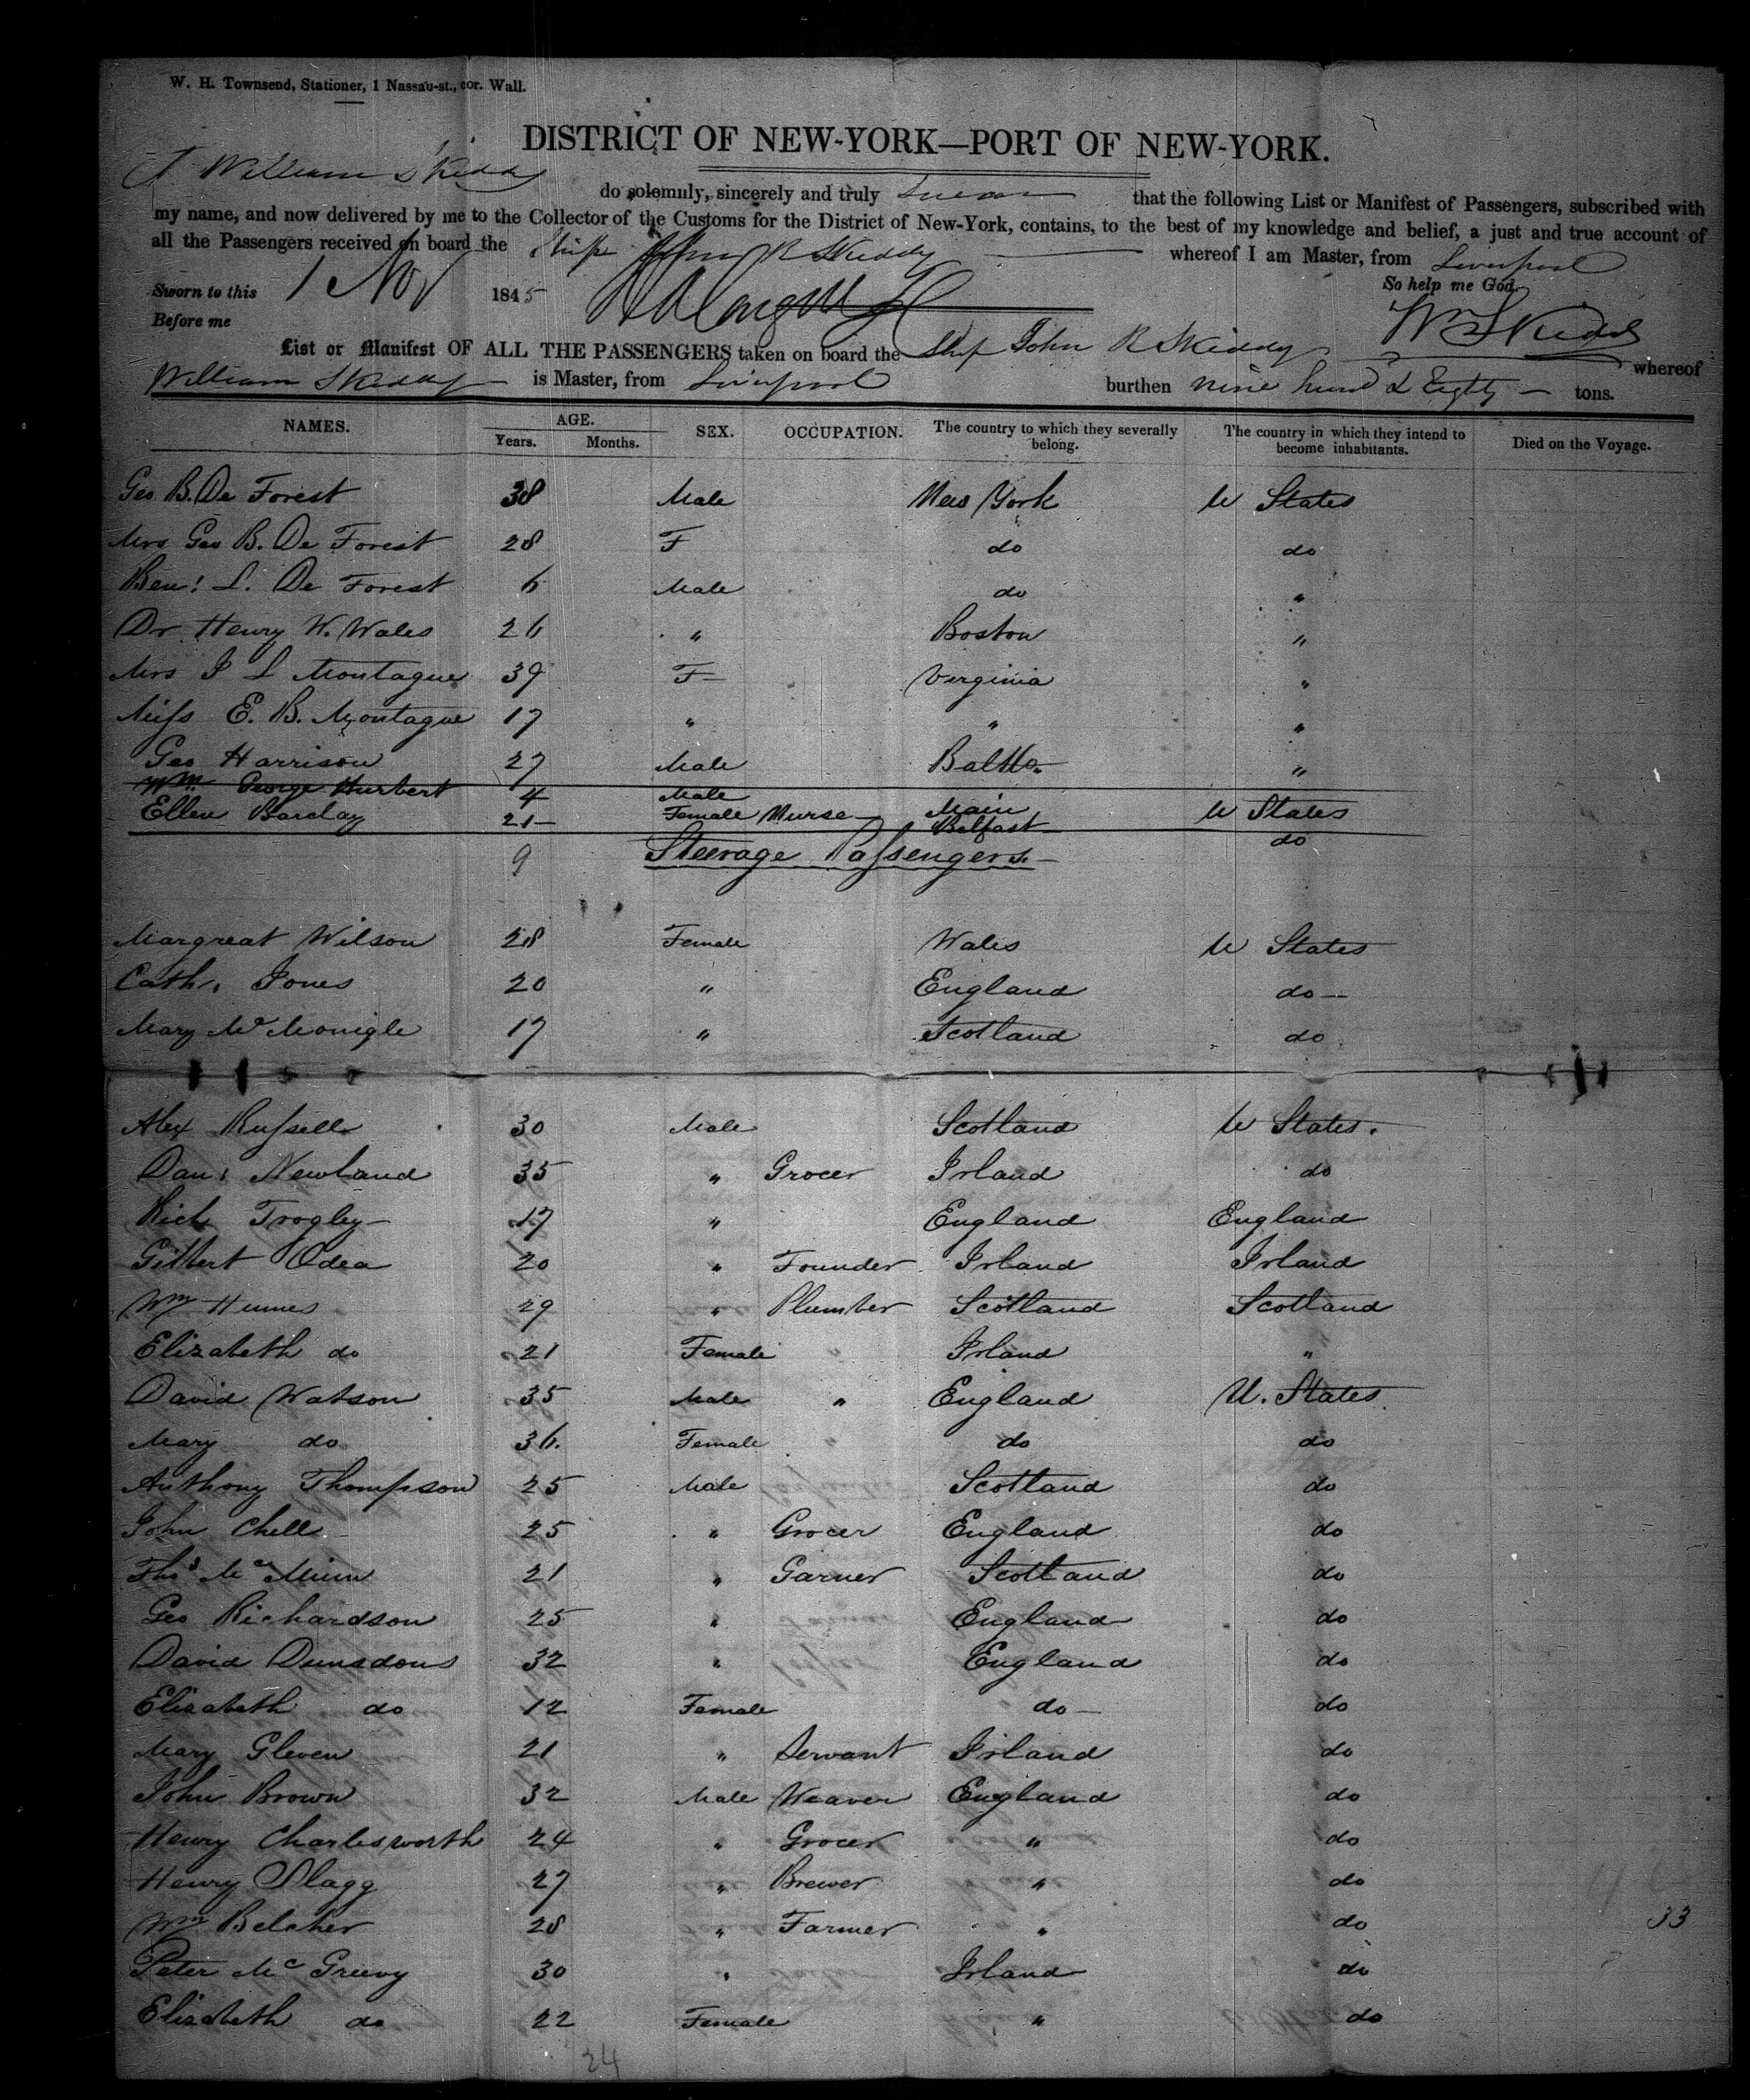 W. H. Townsend, Stationer, 1 Nassau-st., cor. Wall.
DISTRICT OF NEW-YORK—PORT OF NEW-YORK.
I William Skiddy do solemnly, sincerely and truly Swear that the following List or Manifest of Passengers, subscribed with
my name, and now delivered by me to the Collector of the Customs for the District of New-York, contains, to the best of my knowledge and belief, a just and true account of
all the Passengers received on board the Ship John R Skiddy whereof I am Master, from Liverpool
Sworn to this 1 Nov 1845 So help me God.
Before me Wm Skiddy
List or Manifest OF ALL THE PASSENGERS taken on board the Ship John R Skiddy whereof
William Skiddy is Master, from Liverpool burthen nine hund & Eighty tons.
NAMES. AGE. Years. Months. SEX. OCCUPATION. The country to which they severally belong. The country in which they intend to become inhabitants. Died on the Voyage.
Geo B. De Forest 38 Male New York U States
Mrs Geo B. De Forest 28 F do do
Ben: L. De Forest 6 Male do "
Dr Henry W. Wales 26 " Boston "
Mrs J L Montague 39 F Virginia "
Miss E. B. Montague 17 " " "
Geo Harrison 27 Male Balto. "
Wm George Hurbert 4 Male Main U States
Ellen Barclay 21 Female Nurse Belfast do
9 Steerage Passengers.
Margreat Wilson 28 Female Wales U States
Cath. Jones 20 " England do
Mary Mc Monigle 17 " Scotland do
Alex Russell 30 Male Scotland U States.
Dan: Newland 35 " Grocer Irland do
Rich Trogley 17 " England England
Gilbert Odea 20 " Founder Irland Irland
Wm Humes 29 " Plumber Scotland Scotland
Elizabeth do 21 Female " Irland "
David Watson 35 Male " England U. States
Mary do 36. Female " do do
Anthony Thompson 25 Male Scotland do
John Chell 25 " Grocer England do
Thos Mc Minn 21 " Garner Scotland do
Geo Richardson 25 " England do
David Dunsdons 32 " England do
Elizabeth do 12 Female do do
Mary Gleven 21 " Servant Irland do
John Brown 32 Male Weaver England do
Henry Charlesworth 24 " Grocer " do
Henry Slagg 27 " Brewer " do
Wm Belcher 28 " Farmer " do 33
Peter Mc Greevy 30 " Irland do
Elizabeth do 22 Female " do
24